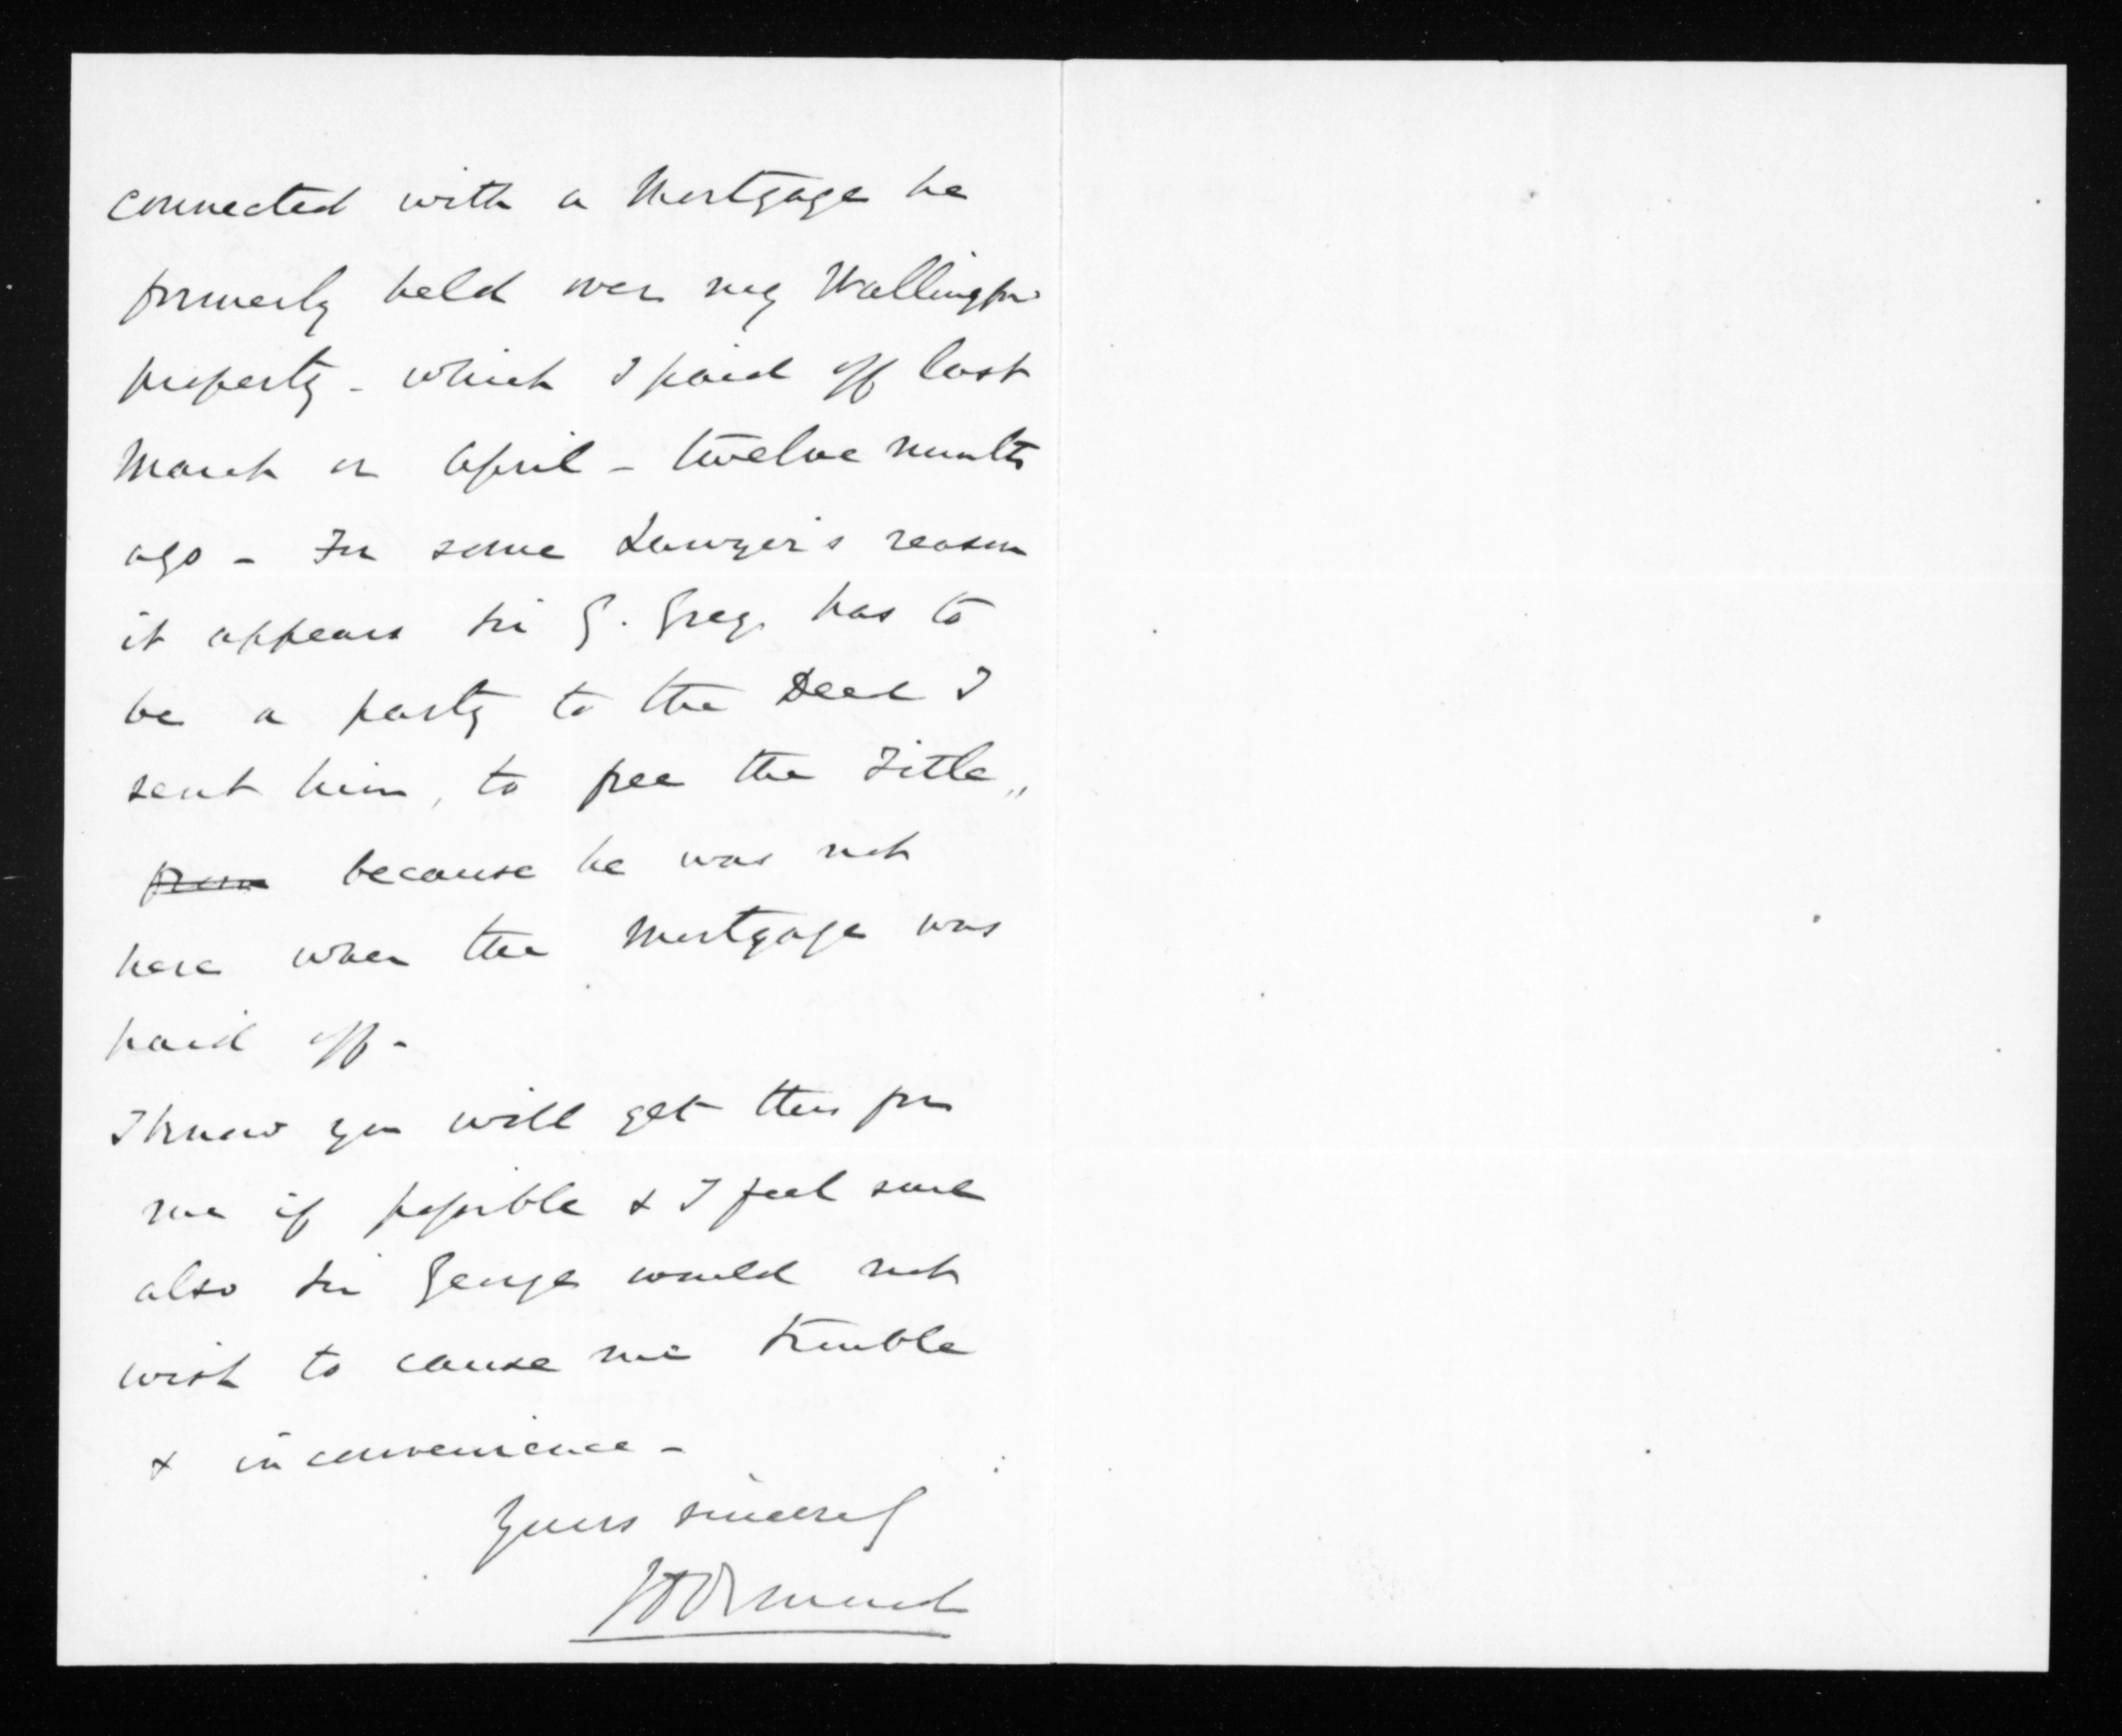 connected with a Mortgage he
formerly held over my Wallingford
property - which I paid off last
March or April - twelve months
ago - For some Lawyer's reason
it appears Sir G. Grey has to
be a party to the Deed I
sent him, to free the Title,,
from because he was not
here when the Mortgage was
paid off -
I know you will get this for
me if possible & I feel sure
also Sir George would not
wish to cause me trouble
& inconvenience -
Yours sincerely
JD Ormond